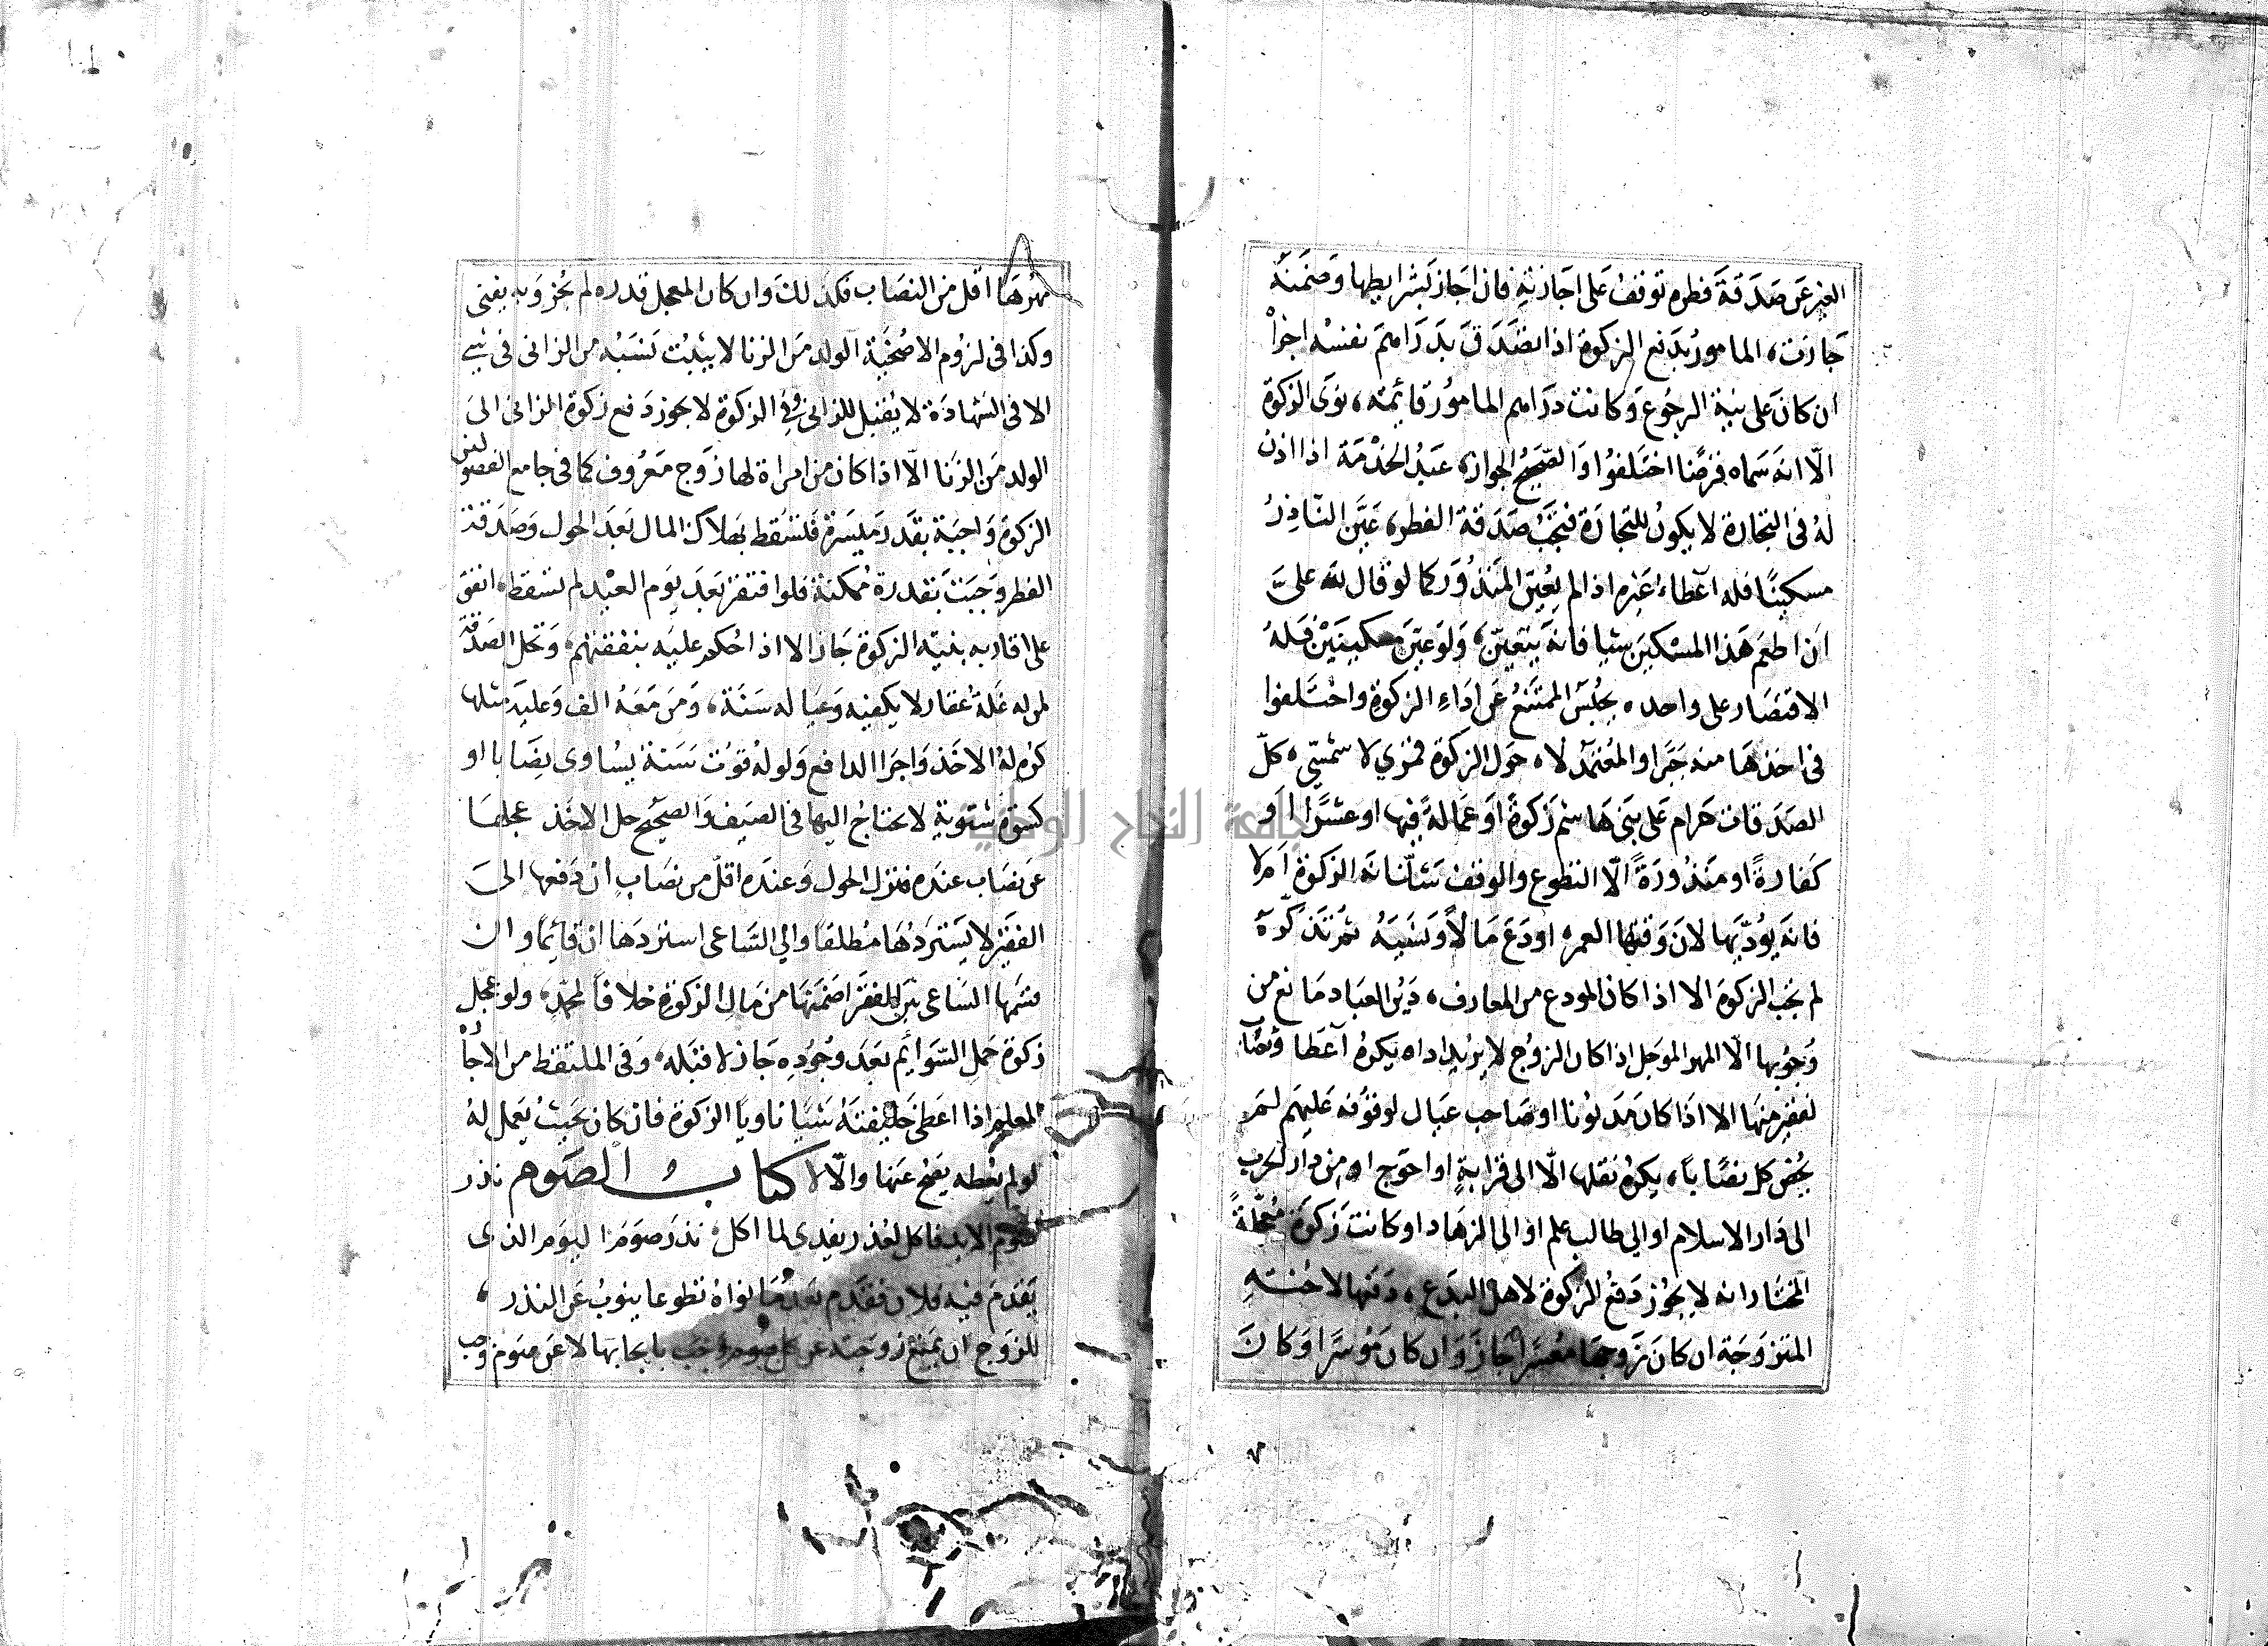 الغير عن صدقة فطره توقف على اجازته فان اجاز بشرايطها وضمنه
جازت، المامور بدفع الزكوة اذا تصدق بدراهم نفسه اجزأ
ان كان على نية الرجوع وكانت دراهم المامور قايمة، نوى الزكوة
الا انه سماه قرضا اختلفوا والصحيح الجواز، عبد الخدمة اذا اذن
له فى التجارة لا يكون للتجارة فتجب صدقة الفطر، عين الناذر
مسكينا فله اعطاء غيره اذا لم يعين المنذور كما لو قال لله علىّ
ان اطعم هذا المسكين شيا فانه يتعين، ولو عين مسكينين فله
الاقتصار على واحد، يحبس الممتنع عن اداء الزكوة واختلفوا
فى اخذها منه جبرا والمعتمد لا، حول الزكوة قمري لا شمسى، كل
الصدقات حرام على بنى هاشم زكوة او عمالة فيها او عشرا او
كفارة او منذورة الا التطوع والوقف شك انه الزكوة ام لا
فانه يؤديها لان وقتها العمر، اودع مالا ونسيه ثم تذكره
لم تجب الزكوة الا اذا كان المودع من المعارف، دين العباد مانع من
وجوبها الا المهر الموجل اذا كان الزوج لا يريد اداه يكره اعطا نصاب
لفقير منها الا اذا كان مديونا او صاحب عيال لو فرقه عليهم لم
يخص كل نصابا، يكره نقلها الا الى قرابة او احوج او من دار الحرب
الى دار الاسلام او الى طالب علم او الى الزهاد او كانت زكوة معجلة
المختار انه لا يجوز دفع الزكوة لاهل البدع، دفعها لاخته
المتزوجة ان كان زوجها معسرا جاز وان كان موسرا وكان
مهرها اقل من النصاب فكذلك وان كان المعجل قدره لم يجز وبه يفتى
وكذا فى لزوم الاضحية الولد من الزنا لا يثبت نسبه من الزانى فى شي
الا فى الشهادة لا يقبل للزانى وفي الزكوة لا يجوز دفع زكوة الزانى الى
الولد من الزنا الا اذا كان من امراة لها زوج معروف كما فى جامع الفصولين
الزكوة واجبة بقدرة ميسرة فتسقط بهلاك المال بعد الحول وصدقة
الفطر وجبت بقدرة ممكنة فلو افتقر بعد يوم العيد لم تسقط، انفق
على اقاربه بنية الزكوة جاز الا اذا حكم عليه بنفقتهم، وتحل الصدقة
لمن له غلة عقار لا يكفيه وعياله سنة، ومن معه الف وعليه مثلها
كره له الاخذ واجزا الدافع ولو له قوت سنة يساوى نصابا او
كسوة شتوية لا يحتاج اليها فى الصيف والصحيح حل الاخذ عجلها
عن نصاب عنده فتم الحول وعنده اقل من نصاب ان دفعها الى
الفقير لا يستردها مطلقا والي الساعى استردها ان قايما وان
قسمها الساعى بين الفقرا ضمنها من مال الزكوة خلافا لمحمد، ولو عجل
زكوة حمل السوايم بعد وجوده جاز لا قبله، وفى الملتقط من الاجارة
المعلم اذا اعطى خليفته شيا ناويا الزكوة فان كان بحيث يعمل له
لو لم يعطه يصح عنها والا لا كتاب الصوم نذر
صوم الابد فاكل لعذر يفدى لما اكل، نذر صوم اليوم الذى
يقدم فيه فلان فقدم بعدما نواه تطوعا ينوب عن النذر،
للزوج ان يمنع زوجته عن كل صوم وجب بايجابها لا عن صوم وجب
جامعة النجاح الوطنية